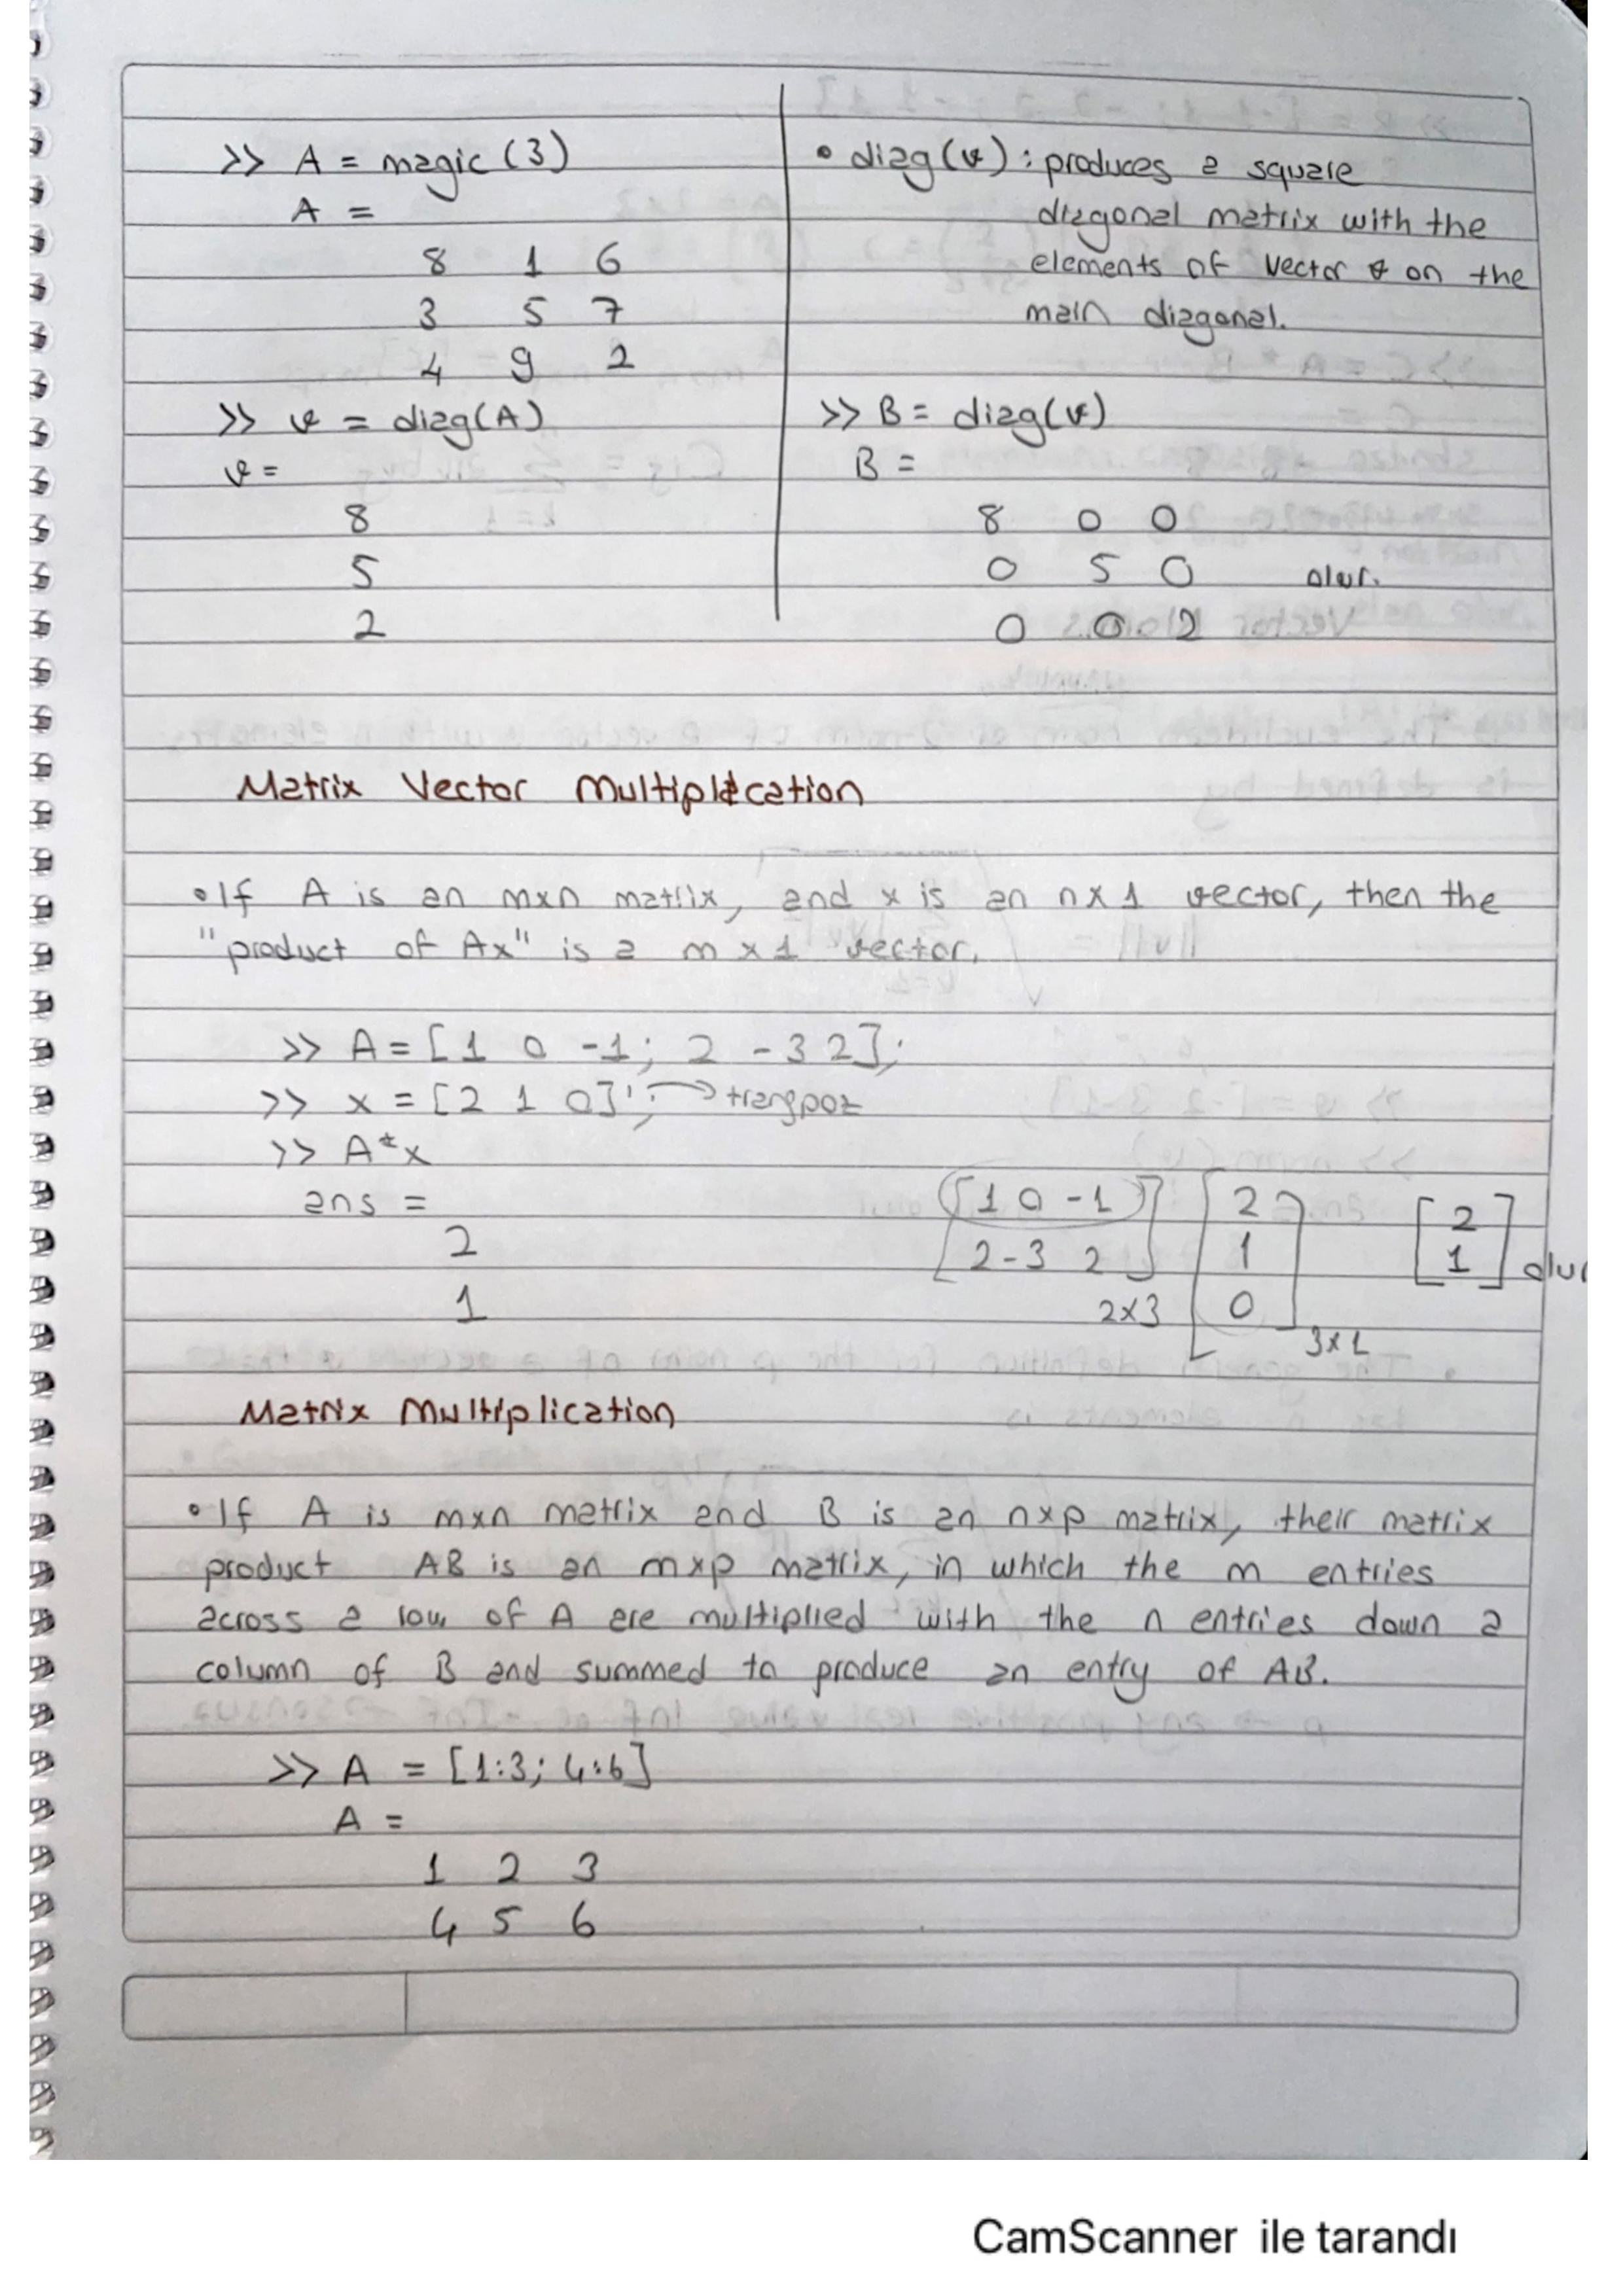 >> A = magic (3)
A =
8 1 6
3 5 7
4 9 2
>> v = diag(A)
v =
8
5
2
• diag(v) : produces a square
diagonal matrix with the
elements of vector v on the
main diagonal.
>> B = diag(v)
B =
8 0 0
0 5 0 olur.
0 0 2
Matrix Vector Multiplication
• If A is an mxn matrix, and x is an nx1 vector, then the
"product of Ax" is a m x 1 vector.
>> A = [1 0 -1; 2 -3 2];
>> x = [2 1 0]'; → transpoz
>> A*x
ans =
2
1
[1 0 -1] [2] [2]
[2 -3 2] [1] [1] olur
2x3 [0] 3x1
Matrix Multiplication
• If A is mxn matrix and B is an nxp matrix, their matrix
product AB is an mxp matrix, in which the m entries
across a row of A are multiplied with the n entries down a
column of B and summed to produce an entry of AB.
>> A = [1:3; 4:6]
A =
1 2 3
4 5 6
CamScanner ile tarandı